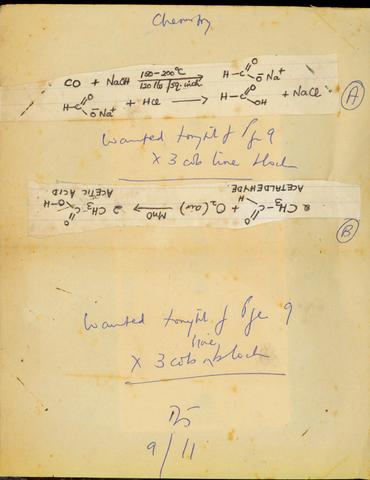 Chemistry
CO + NaOH 150-200°C 120 lb/sq. inch → H-C O O⁻Na⁺
H-C O O⁻Na⁺ + HCl → H-C O OH + NaCl
A
Wanted tonight f Pge 9
x 3 cols line block
2 CH₃-C H O + O₂ (air) MnO → 2 CH₃-C O O-H
ACETALDEHYDE ACETIC ACID
B
Wanted tonight f Pge 9
x 3 cols line block
9/11